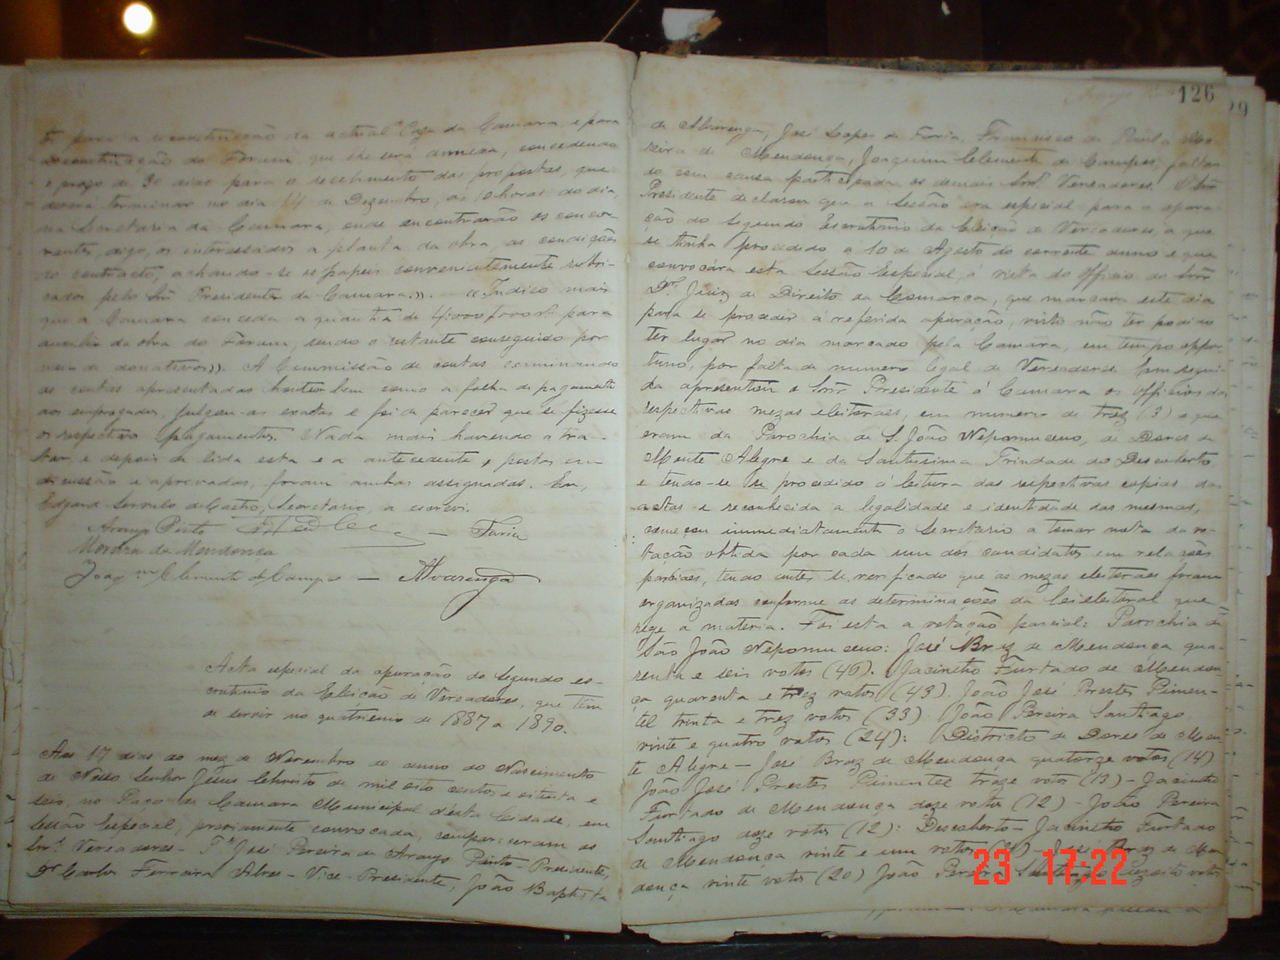 para a reconstrucção da actual Caza da Camara, e para
a construcção do Forum, que lhe será annexa, concedendo
o prazo de 30 dias para o recebimento das propostas, que
deverá terminar no dia 14 de Dezembro, ás horas do dia,
na Secretaria da Camara, onde encontrarão os concor-
rentes, digo, os interessados a planta da obra, as condições
do contracto, achando-se os papeis convenientemente rubri-
cados pelo Snr Presidente da Camara.» — «Indico mais
que a Camara conceda a quantia de para
auxilio da obra do Forum, sendo o restante conseguido por
meio de donativos». A Commissão de contas examinando
as contas apresentadas hontem bem como a folha de pagamento
aos empregados, julgou-as exactas e foi de parecer que se fizesse
os respectivos pagamentos. Nada mais havendo a tra-
tar, e depois de lida esta e a antecedente e postas em
discussão e approvadas, foram ambas assignadas. Eu,
Edgard de Castro, Secretario, a escrevi.
Araujo Pinto — Faria
Moreira de Mendonça
Joaqm Clemente de Campos — Alvarenga
Acta especial da apuração do segundo es-
crutinio da Eleição de Vereadores, que tem
de servir no quatrienio de 1887 a 1890.
Aos 17 dias do mez de Novembro do anno do Nascimento
de Nosso Senhor Jesus Christo de mil oito centos e oitenta e
seis, no Paço da Camara Municipal d'esta Cidade, em
Sessão Especial, previamente convocada, compareceram os
Snrs Vereadores - José Pereira de Araujo Pinto - Presidente,
Dr Carlos Ferreira Alves - Vice-Presidente, João Baptista
126
de Alvarenga, José Lopes de Faria, Francisco de Paula Mo-
reira de Mendonça, Joaquim Clemente de Campos, faltan-
do sem causa participada os demais Snrs Vereadores. O Snr
Presidente declarou que a Sessão era especial para a apura-
ção do Segundo Escrutinio da Eleição de Vereadores, a que
se tinha procedido a 10 de Agosto do corrente anno e que
convocára esta Sessão Especial, á vista do officio do Snr
Dr. Juiz de Direito da Comarca, que marcara este dia
para se proceder á referida apuração, visto não ter podido
ter lugar no dia marcado pela Camara, em tempo oppor-
tuno, por falta de numero legal de Vereadores. Em segui-
da apresentou o Snr Presidente á Camara os officios das
respectivas mezas eleitoraes, em numero de trez (3) e que
eram da Parochia de S. João Nepomuceno, de Dores do
Monte Alegre e da Santissima Trindade do Descoberto
e tendo-se procedido á leitura das respectivas copias das
actas e reconhecida a legalidade e identidade das mesmas,
começou immediatamente o Secretario a tomar nota da vo-
tação obtida por cada um dos candidatos em relações
parciaes, tendo antes se verificado que as mezas eleitoraes foram
organizadas conforme as determinações da lei eleitoral que
rege a materia. Foi esta a votação parcial: Parochia de
São João Nepomuceno: José Braz de Mendonça qua-
renta e seis votos (46). Jacintho Furtado de Mendon-
ça quarenta e trez votos (43). João José Prestes Pimen-
tel trinta e trez votos (33). João Pereira Santiago
vinte e quatro votos (24): Districto de Dores de Mon-
te Alegre — José Braz de Mendonça quatorze votos (14)
João José Prestes Pimentel treze votos (13) - Jacintho
Furtado de Mendonça doze votos (12) - João Pereira
Santiago doze votos (12): Descoberto - Jacintho Furtado
de Mendonça vinte e um votos (21) José Braz de Men-
donça vinte votos (20) João Pereira Santiago dezoito votos
23 17:22